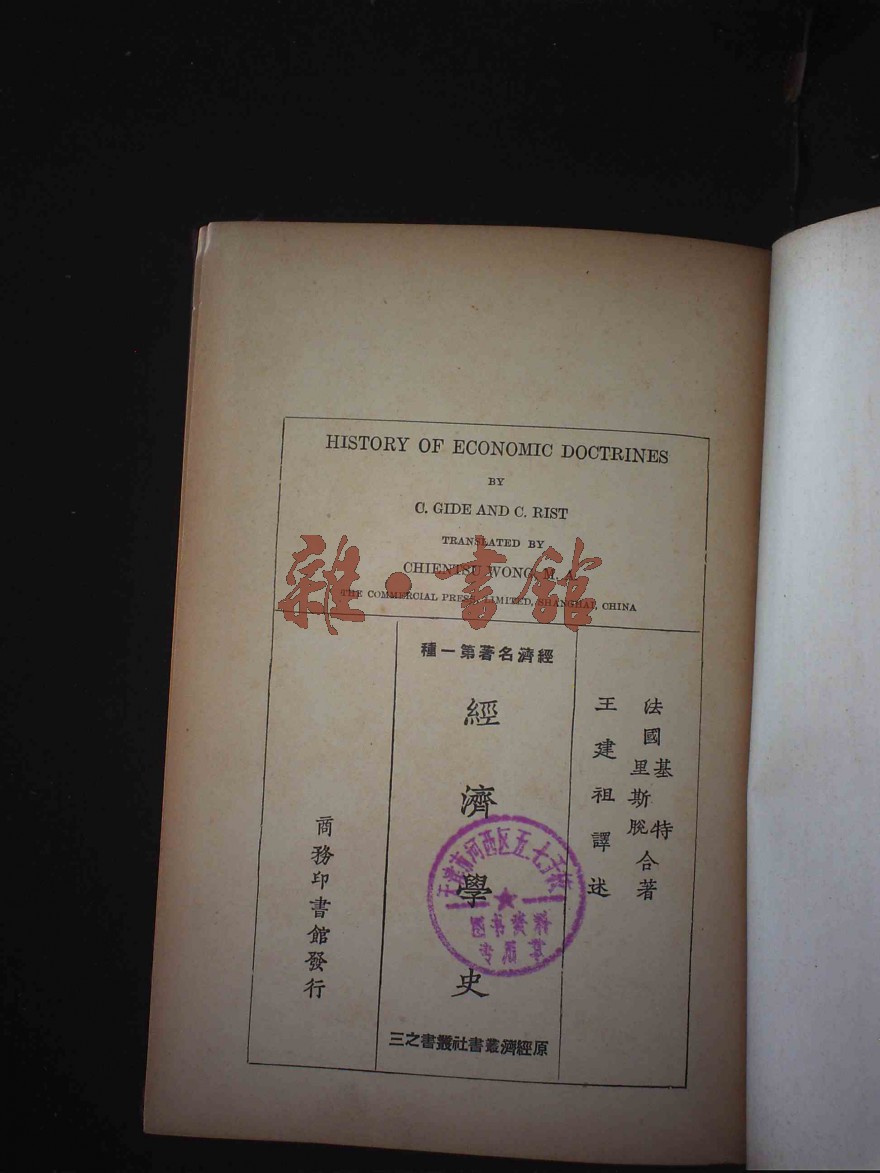 HISTORY OF ECONOMIC DOCTRINES
BY
C. GIDE AND C. RIST
TRANSLATED BY
CHIENTSU WONG, M. A.
THE COMMERCIAL PRESS, LIMITED, SHANGHAI, CHINA
雜·書館
種一第著名濟經
法國基特里斯脫合著
王建祖譯述
經濟學史
三之書叢社書叢濟經原
商務印書館發行
天津市河西区五七干校